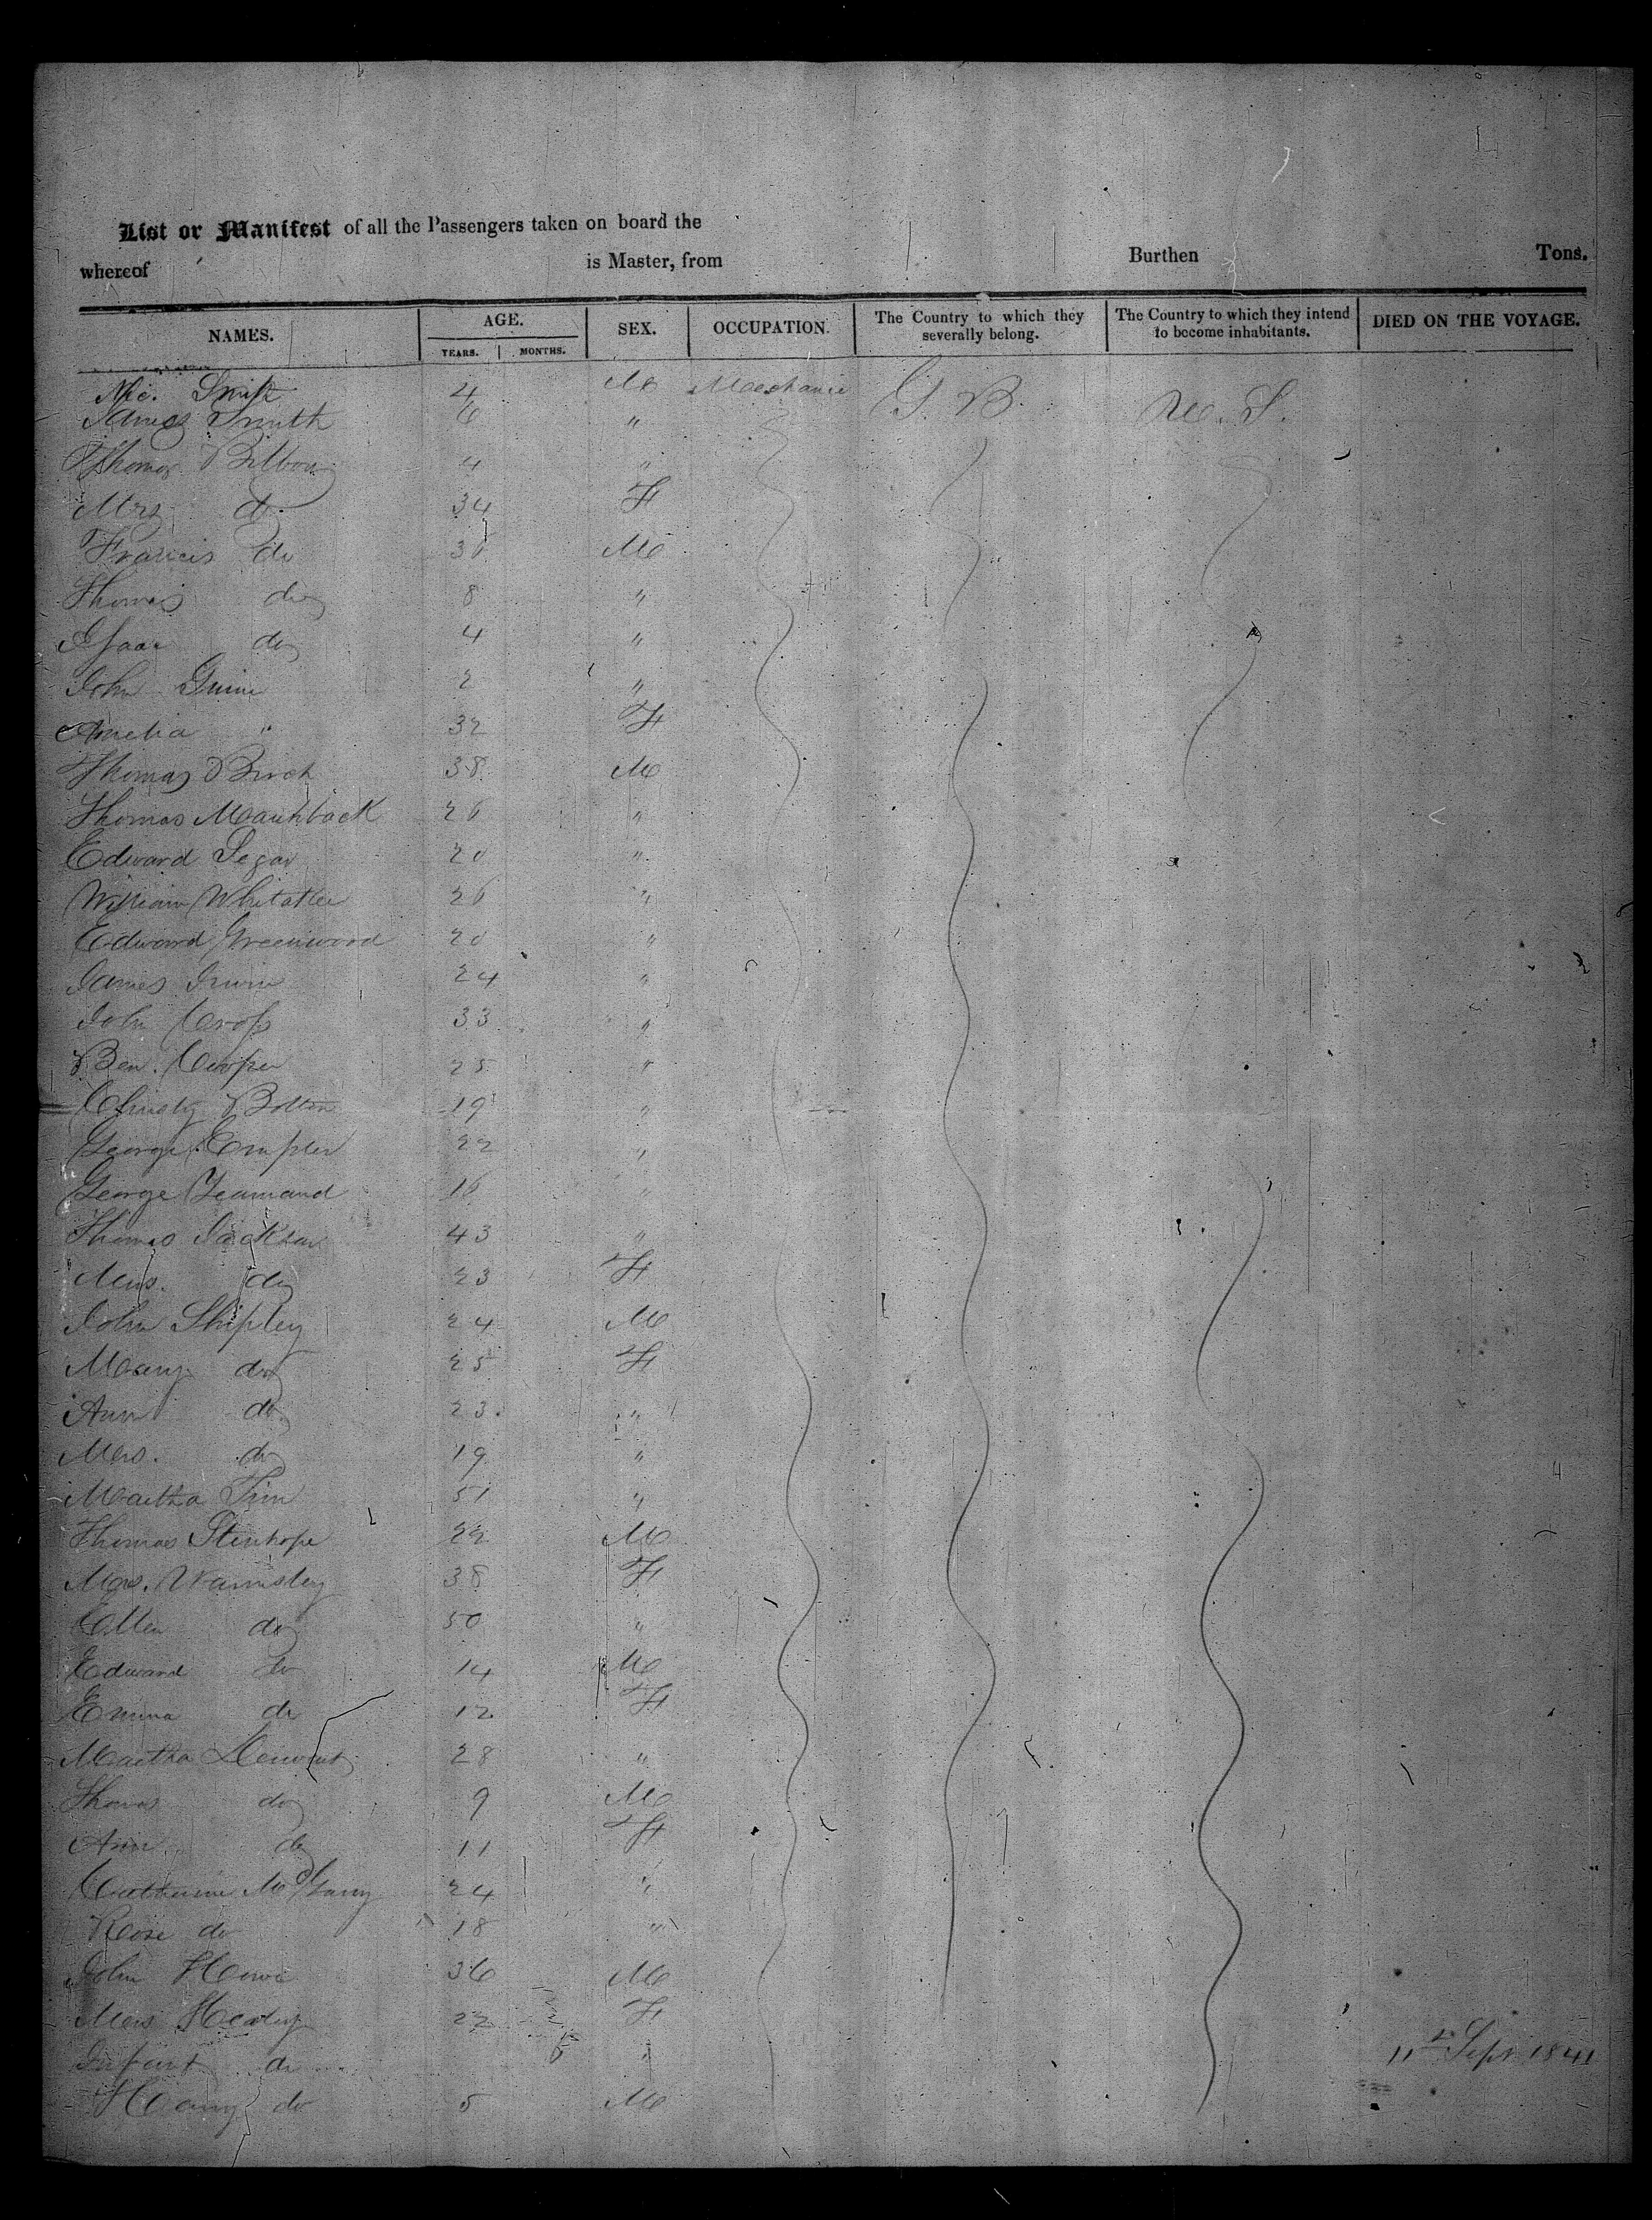 List or Manifest of all the Passengers taken on board the
whereof is Master, from Burthen Tons.
NAMES. AGE. SEX. OCCUPATION. The Country to which they severally belong. The Country to which they intend to become inhabitants. DIED ON THE VOYAGE.
YEARS. MONTHS.
Smith 4 M Mechanic G. B. U. S.
James Smith 6 "
Thomas 4 "
Mrs do 34 F
Francis do M
Thomas do 8 "
Isaac do 4 "
John 2 "
Amelia " 32 F
Thomas Birch 38 M
Thomas 26 "
Edward Segar 20 "
William Whitaker 26 "
Edward Greenwood 20 "
James Irwin 24 "
John Cross 33 "
Ben. Cooper 25 "
Christy Bolton 19 "
George 22 "
George Yeamand 16 "
Thomas Jackson 43 "
Mrs. do 23 F
John Shipley 24 M
Mary do 25 F
Ann do 23 "
Mrs. do 19 "
Martha 51 "
Thomas Stenhope 22 M
Mrs. Wamsley 38 F
Ellen do 50 "
Edward do 14 M
Emma do 12 F
Martha 28 "
Thomas do 9 M
Ann do 11 F
Catherine 24 "
Rose do 18 "
John Howe 36 M
Mrs Healey 22 F
Infant do " Sept 1841
Harry do 5 M